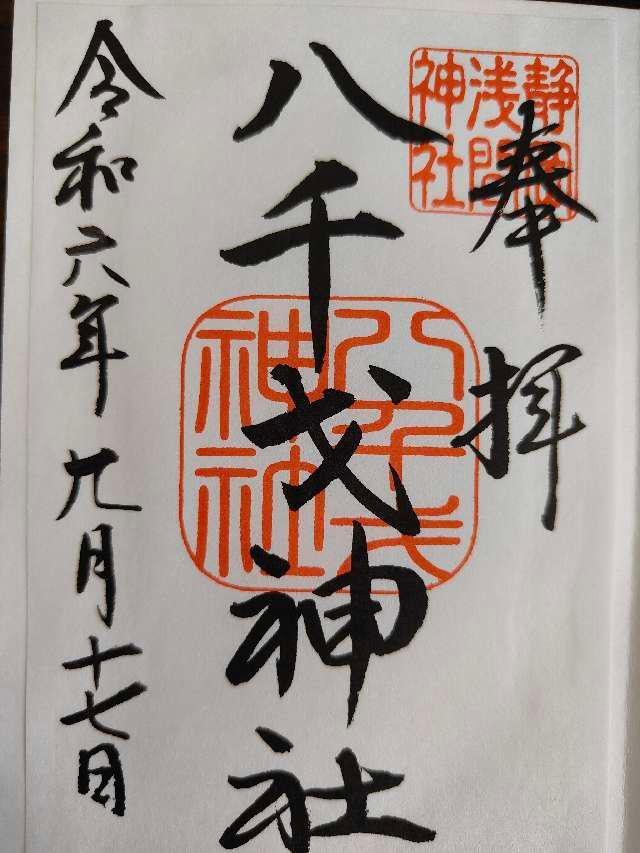 奉拝
静岡
浅間
神社
八千戈神社
八千戈
神社
令和六年九月十七日